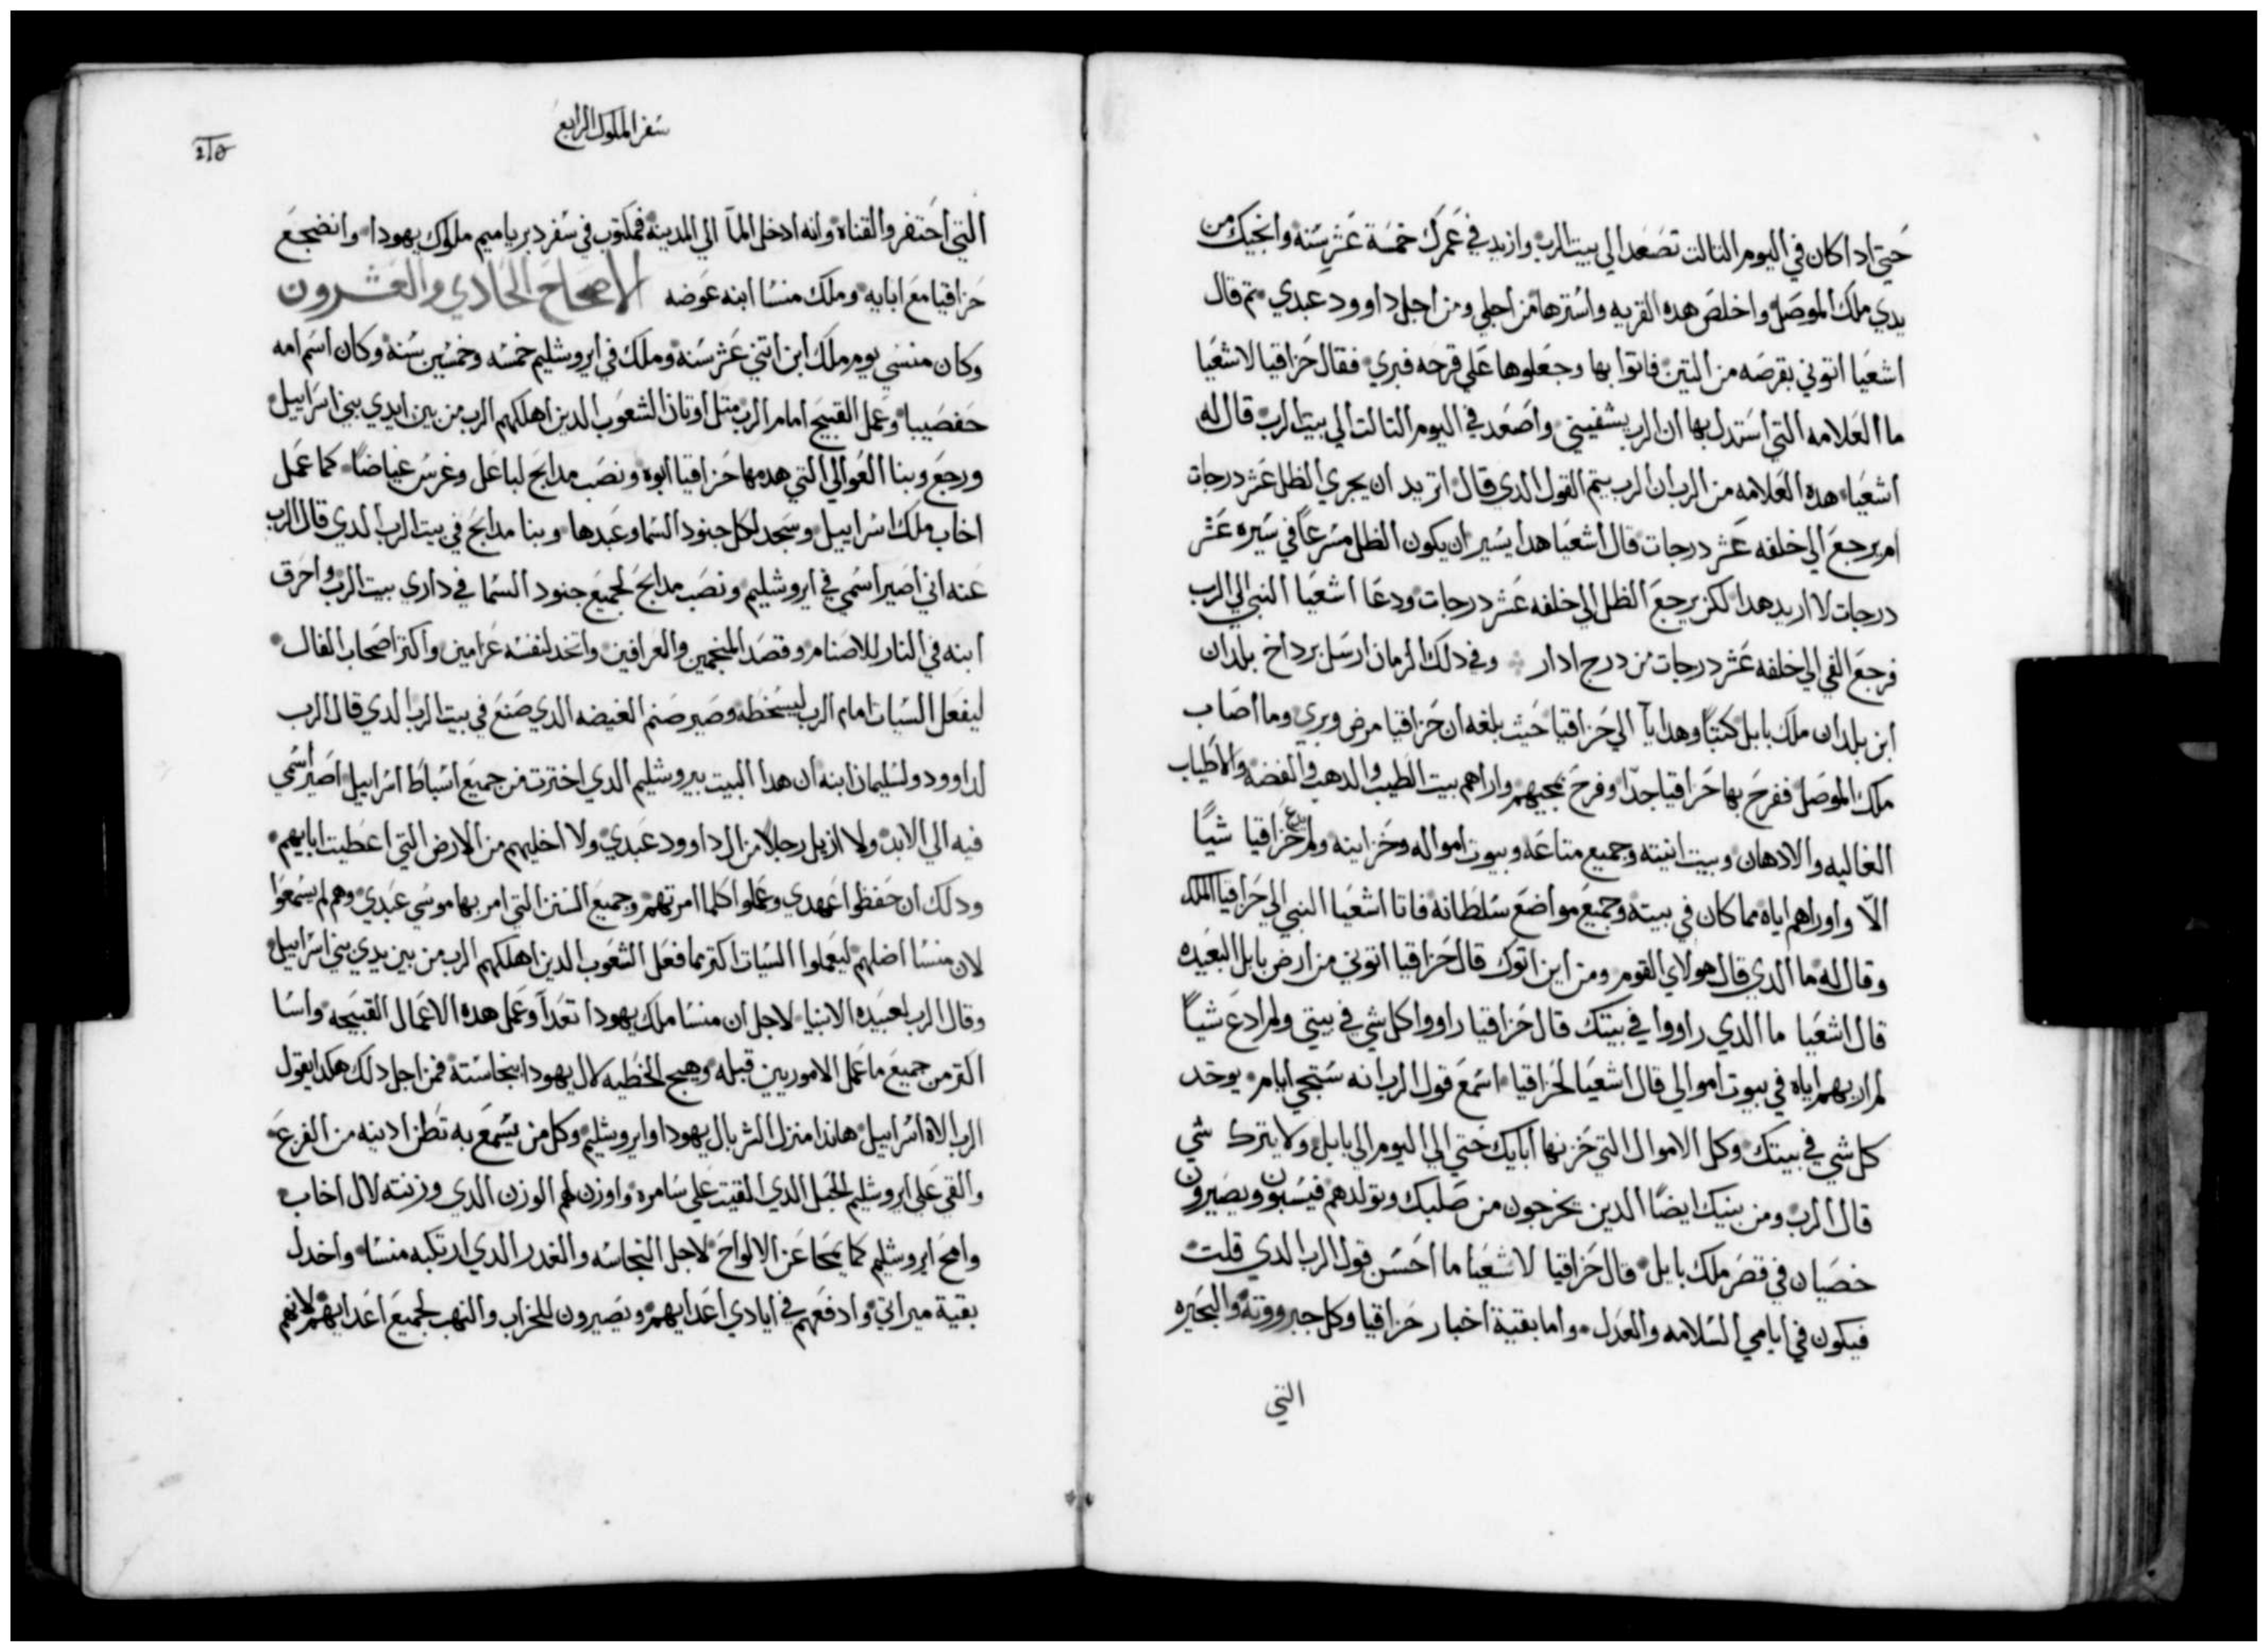 حتي ادا كان في اليوم التالت تصعد الي بيت الرب وازيد في عمرك خمسة عشر سنه وانجيك من
يدي ملك الموصل واخلص هده القريه واسترها من اجلي ومن اجل داوود عبدي تم قال
اشعيا اتوني بقرصه من التين فاتوا بها وجعلوها علي قرحه فبري فقال حزاقيا لاشعيا
ما العلامه التي استدل بها ان الرب يشفيني واصعد في اليوم التالت الي بيت الرب قال له
اشعيا هده العلامه من الرب ان الرب يتم القول الدي قال اتريد ان يجري الظل عشر درجات
ام يرجع الي خلفه عشر درجات قال اشعيا هدا يسير ان يكون الظل مسرعاً في سيره عشر
درجات لا اريد هدا لكن يرجع الظل الي خلفه عشر درجات ودعا اشعيا النبي الي الرب
فرجع الفي الي خلفه عشر درجات من درج ادار وفي دلك الزمان ارسل برداخ بلدان
ابن بلدان ملك بابل كتباً وهدايآ الي حزاقيا حيث بلغه ان حزاقيا مرض وبري وما اصاب
ملك الموصل ففرح بها حزاقيا جدّا وفرح بمجيهم واراهم بيت الطيب والدهب والفضه والاطياب
الغاليه والادهان وبيت انيته وجميع متاعه وبيوت امواله وخزاينه ولم يدع حزاقيا شياً
الّا واوراهم اياه مما كان في بيته وجميع مواضع سلطانه فاتا اشعيا النبي الي حزاقيا الملك
وقال له ما الدي قال هولاي القوم ومن اين اتوك قال حزاقيا اتوني من ارض بابل البعيده
قال اشعيا ما الدي راووا في بيتك قال حزاقيا راووا كل شي في بيتي ولم ادع شياً
لم اريهم اياه في بيوت اموالي قال اشعيا لحزاقيا اسمع قول الرب انه ستجي ايام يوخد
كل شي في بيتك وكل الاموال التي خزنها ابايك حتي الي اليوم الي بابل ولا يترك شي
قال الرب ومن بنيك ايضاً الدين يخرجون من صلبك وتولدهم فيسبون ويصيرون
خصيان في قصر ملك بابل قال حزاقيا لاشعيا ما احسن قول الرب الدي قلت
فيكون في ايامي السلامه والعدل واما بقية اخبار حزاقيا وكل جبرووته والبحيره
التي
سفر الملوك الرابع
التي احتفر والقناه وانه ادخل المآ الي المدينه فمكتوب في سفر دبرياميم ملوك يهودا وانضجع
حزاقيا مع ابايه وملك منسا ابنه عوضه الاصحاح الحادي والعشرون
وكان منسي يوم ملك ابن اتني عشر سنه وملك في ايروشليم خمسه وخمسين سنه وكان اسم امه
حفصيبا وعمل القبيح امام الرب متل اوتان الشعوب الدين اهلكهم الرب من بين ايدي بني اسراييل
ورجع وبنا العوالي التي هدمها حزاقيا ابوه ونصب مدابح لباعل وغرس غياضاً كما عمل
اخاب ملك اسراييل وسجد لكل جنود السما وعبدها وبنا مدابح في بيت الرب الدي قال الرب
عنه اني اصير اسمي في ايروشليم ونصب مدابح لجميع جنود السما في داري بيت الرب واحرق
ابنه في النار للاصنام وقصد المنجمين والعرافين واتخد لنفسه عرامين واكتر اصحاب الفال
ليفعل السيات امام الرب ليسخطه وصير صنم الغيضه الدي صنع في بيت الرب الدي قال الرب
لداوود ولسليمان ابنه ان هدا البيت بيروشليم الدي اخترت من جميع اسباط اسراييل اصير اسمي
فيه الي الابد ولا ازيل رجلا من ال داوود عبدي ولا اخليهم من الارض التي اعطيت ابايهم
ودلك ان حفظوا عهدي وعملوا كلما امرتهم وجميع السنن التي امر بها موسي عبدي وهم لم يسمعوا
لان منسا اضلهم ليعملوا السيات اكتر مما فعل الشعوب الدين اهلكهم الرب من بين يدي بني اسراييل
وقال الرب لعبيده الانبيا لاجل ان منسا ملك يهودا تعدآ وعمل هده الاعمال القبيحه واسا
اكتر من جميع ما عمل الاموريين قبله وهيج الخطيه لال يهودا بنجاسته فمن اجل دلك هكدا يقول
الرب الاه اسراييل هاندا منزل الشر بال يهودا وايروشليم وكل من يسمع به تطن ادنيه من الفزع
والقي علي ايروشليم الحبل الدي القيت علي سامره واوزن لهم الوزن الدي وزنته لال اخاب
وامح ايروشليم كما يمحا عن الالواح لاجل النجاسه والغدر الدي ارتكبه منسا واخدل
بقية ميراتي وادفعهم في ايادي اعدايهم ويصيرون للخراب والنهب لجميع اعدايهم لانهم